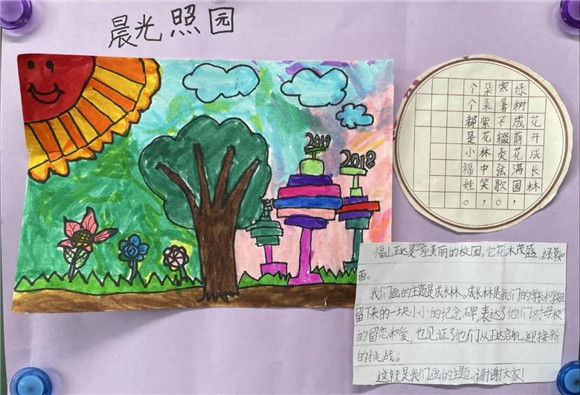 晨光照园
2019
2018
花开成长林
绿树成荫花满园，
寒暑不缀奏弦歌。
朵朵紫花林中笑，
个个都是小福娃。
福山正达是一座美丽的校园，它花木茂盛，绿草如
茵。
我们画的主题是成长林。成长林是我们的学长学姐
留下来的一块小小的纪念碑，表达了他们对学校
的留恋和爱，也见证了他们从正达启航，迎接新
的挑战。
这就是我们画的主题。谢谢大家！